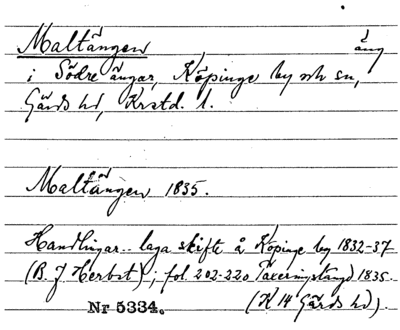 Maltängen äng
i Södre ängar, Köpinge by och sn,
Gärds hd, Krstd. l.
Maltängen 1835.
Handlingar.. laga skifte å Köpinge by 1832-37
(B. J. Herbst); fol. 202-220 Taxeringslängd 1835.
(K 14 Gärds hd).
Nr 5334.